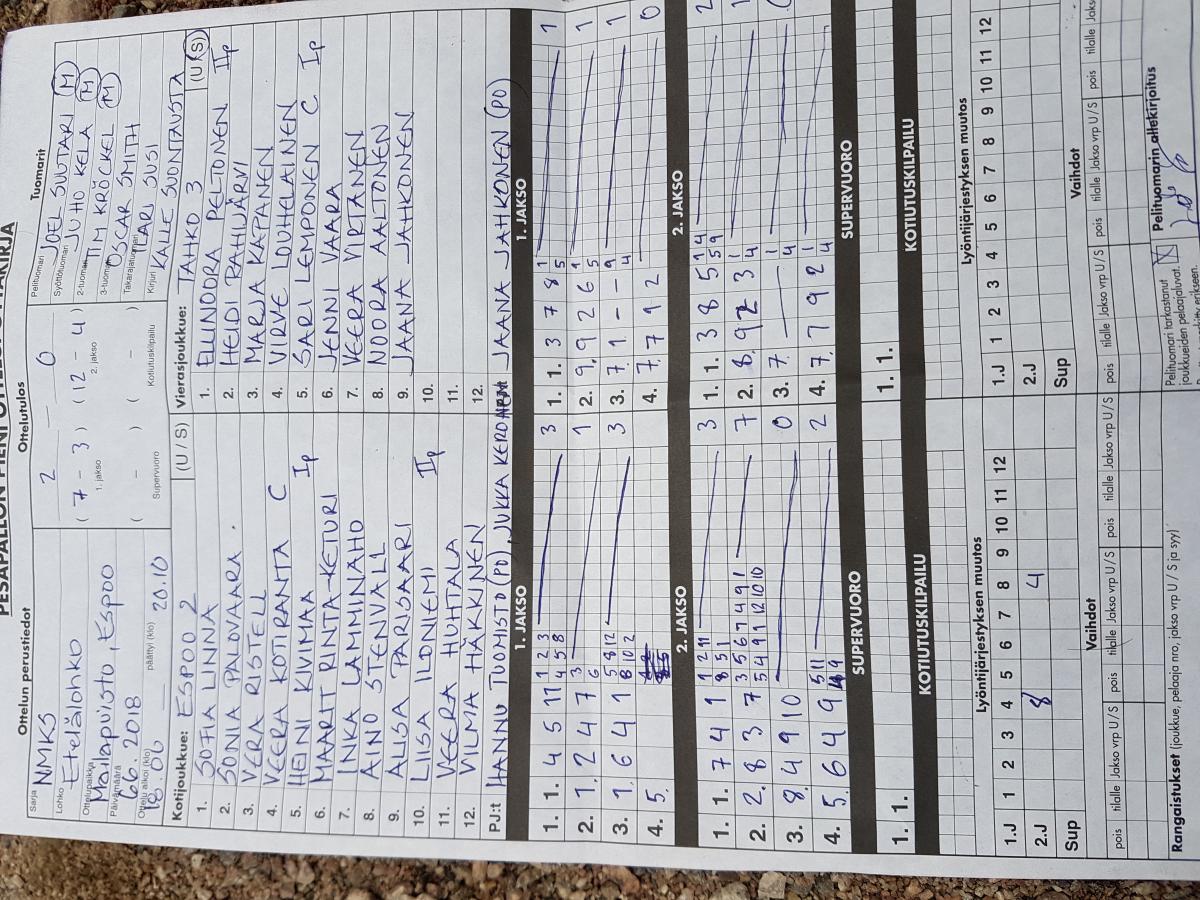 PESÄPALLON PIENI OTTELUPÖYTÄKIRJA
Ottelun perustiedot
Ottelutulos
Tuomarit
Sarja NMKS
Lohko Etelälohko
Ottelupaikka Mailapuisto, Espoo
Päivämäärä 6.6.2018
Ottelu alkoi (klo) 18.06 päättyi (klo) 20.10
2 — 0
( 7 – 3 ) ( 12 – 4 )
1. jakso 2. jakso
( – ) ( – )
Supervuoro Kotiutuskilpailu
Pelituomari JOEL SUUTARI (M)
Syöttötuomari JUHO KELA (M)
2-tuomari TIM KRÖCKEL (M)
3-tuomari OSCAR SMITH
Takarajatuomari ILARI SUSI
Kirjuri KALLE SUONTAUSTA
Kotijoukkue: ESPOO 2 (U / S)
1. SOFIA LINNA
2. SONJA PALOVAARA
3. VERA RISTELL
4. VEERA KOTIRANTA C
5. HENI KIVIMAA Ip
6. MAARIT RINTA-KETURI
7. INKA LAMMINAHO
8. AINO STENVALL
9. ALISA PARISAARI
10. LIISA ILONIEMI IIp
11. VEERA HUHTALA
12. VILMA HÄKKINEN
Vierasjoukkue: TAHKO 3 (U / S)
1. ELLINOORA PELTONEN IIp
2. HEIDI RAHIJÄRVI
3. MARJA KAPANEN
4. VIRVE LOUHELAINEN
5. SARI LEMPONEN C Ip
6. JENNI VAARA
7. VEERA VIRTANEN
8. NOORA AALTONEN
9. JAANA JAHKONEN
10.
11.
12.
PJ:t HANNU TUOHISTO (PO), JUKKA KERONEN JAANA JAHKONEN (PO)
1. JAKSO 1. JAKSO
1. 1. 4 5 11 1 2 3 3
4 5 8
2. 1. 2 4 7 3 1
6
3. 1. 6 4 1 5 8 12 3
8 10 2
4. 5.
1. 1. 3 7 8 1 1
5
2. 9. 9 2 6 1 1
5
3. 7. 1 - - 9 1
4
4. 7. 7 9 2 0
2. JAKSO 2. JAKSO
1. 1. 7 4 1 1 2 11 3
8 5 1
2. 2. 8 3 7 3 5 6 7 4 9 1 7
5 4 9 1 12 10 10
3. 8. 4 9 10 0
4. 5. 6 4 9 5 11 2
9
1. 1. 3 8 5 1 4 2
5 9
2. 8. 9 2 3 1 1
4
3. 7. 1
4
4. 7. 7 9 2 1
4
SUPERVUORO SUPERVUORO
1. 1. 1. 1.
KOTIUTUSKILPAILU KOTIUTUSKILPAILU
Lyöntijärjestyksen muutos Lyöntijärjestyksen muutos
1.J 1 2 3 4 5 6 7 8 9 10 11 12
2.J 8 4
Sup
1.J 1 2 3 4 5 6 7 8 9 10 11 12
2.J
Sup
Vaihdot Vaihdot
pois tilalle Jakso vrp U / S pois tilalle Jakso vrp U / S pois tilalle Jakso vrp U / S
pois tilalle Jakso vrp U / S pois tilalle Jakso vrp U / S pois tilalle Jakso
Rangaistukset (joukkue, pelaaja nro, jakso vrp, U / S ja syy)
Pelituomari tarkastanut
joukkueiden pelaajaluvat.
Pelituomarin allekirjoitus